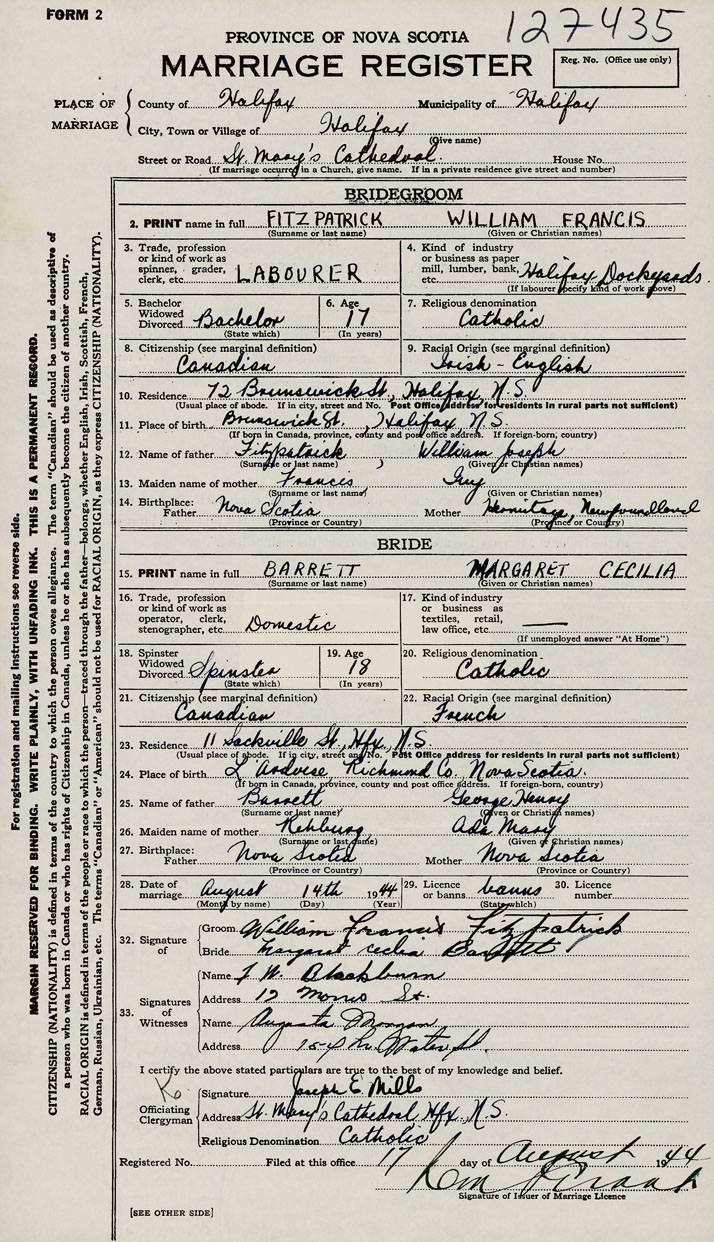 FORM 2
127435
PROVINCE OF NOVA SCOTIA
MARRIAGE REGISTER
Reg. No. (Office use only)
PLACE OF MARRIAGE
County of Halifax Municipality of Halifax
City, Town or Village of Halifax
(Give name)
Street or Road St. Mary's Cathedral. House No.
(If marriage occurred in a Church, give name. If in a private residence give street and number)
BRIDEGROOM
2. PRINT name in full FITZPATRICK WILLIAM FRANCIS
(Surname or last name) (Given or Christian names)
3. Trade, profession or kind of work as spinner, grader, clerk, etc. LABOURER
4. Kind of industry or business as paper mill, lumber, bank, etc. Halifax Dockyards.
(If labourer specify kind of work above)
5. Bachelor Widowed Divorced Bachelor
(State which)
6. Age 17
(In years)
7. Religious denomination
Catholic
8. Citizenship (see marginal definition)
Canadian
9. Racial Origin (see marginal definition)
Irish - English
10. Residence 72 Brunswick St., Halifax, N.S.
(Usual place of abode. If in city, street and No. Post Office address for residents in rural parts not sufficient)
11. Place of birth Brunswick St., Halifax, N.S.
(If born in Canada, province, county and post office address. If foreign-born, country)
12. Name of father Fitzpatrick, William Joseph
(Surname or last name) (Given or Christian names)
13. Maiden name of mother Frances Guy
(Surname or last name) (Given or Christian names)
14. Birthplace: Father Nova Scotia Mother Hermitage, Newfoundland
(Province or Country) (Province or Country)
BRIDE
15. PRINT name in full BARRETT MARGARET CECILIA
(Surname or last name) (Given or Christian names)
16. Trade, profession or kind of work as operator, clerk, stenographer, etc. Domestic
17. Kind of industry or business as textiles, retail, law office, etc. —
(If unemployed answer "At Home")
18. Spinster Widowed Divorced Spinster
(State which)
19. Age 18
(In years)
20. Religious denomination
Catholic
21. Citizenship (see marginal definition)
Canadian
22. Racial Origin (see marginal definition)
French
23. Residence 11 Sackville St., Hfx, N.S.
(Usual place of abode. If in city, street and No. Post Office address for residents in rural parts not sufficient)
24. Place of birth L'Ardoise, Richmond Co. Nova Scotia.
(If born in Canada, province, county and post office address. If foreign-born, country)
25. Name of father Barrett George Henry
(Surname or last name) (Given or Christian names)
26. Maiden name of mother Rehburg Ada Mary
(Surname or last name) (Given or Christian names)
27. Birthplace: Father Nova Scotia Mother Nova Scotia
(Province or Country) (Province or Country)
28. Date of marriage August 14th 1944
(Month by name) (Day) (Year)
29. Licence or banns banns
(State which)
30. Licence number
32. Signature of
Groom William Francis Fitzpatrick
Bride Margaret Cecilia Barrett
33. Signatures of Witnesses
Name J. W. Blackburn
Address 12 Morris St.
Name Augusta Morgan
Address Water St.
I certify the above stated particulars are true to the best of my knowledge and belief.
Officiating Clergyman
Signature Joseph E. Mills
Address St. Mary's Cathedral, Hfx, N.S.
Religious Denomination Catholic
Registered No. Filed at this office 17 day of August 1944
Signature of Issuer of Marriage Licence
[SEE OTHER SIDE]
For registration and mailing instructions see reverse side.
MARGIN RESERVED FOR BINDING. WRITE PLAINLY, WITH UNFADING INK. THIS IS A PERMANENT RECORD.
CITIZENSHIP (NATIONALITY) is defined in terms of the country to which the person owes allegiance. The term "Canadian" should be used as descriptive of
a person who was born in Canada or who has rights of Citizenship in Canada, unless he or she has subsequently become the citizen of another country.
RACIAL ORIGIN is defined in terms of the people or race to which the person—traced through the father—belongs, whether English, Irish, Scottish, French,
German, Russian, Ukrainian, etc. The terms "Canadian" or "American" should not be used for RACIAL ORIGIN, as they express CITIZENSHIP (NATIONALITY).